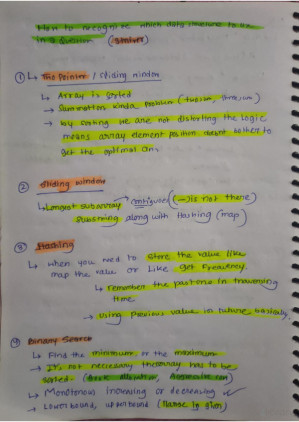 How to recognize which data structure to use
in a Question (Striver)
① ↳ Two Pointer / sliding window
↳ Array is sorted
→ Summation kinda problem (two sum, three sum)
→ by sorting we are not distorting the logic
means array element position doesnt bothers to
get the optimal ans
② Sliding window
↳ Longest subarray → contiguous (-ve is not there)
substring along with Hashing (map)
③ Hashing
↳ when you need to store the value like
map the value or like get frequency.
↳ remember the past one in traversing
time
→ Using previous value in future basically.
④ Binary Search
↳ Find the minimum, or the maximum
→ It's not necessary the array has to be
sorted (Book Allocation, Aggressive cow)
→ Monotonous increasing or decreasing
→ Lower bound, upper bound